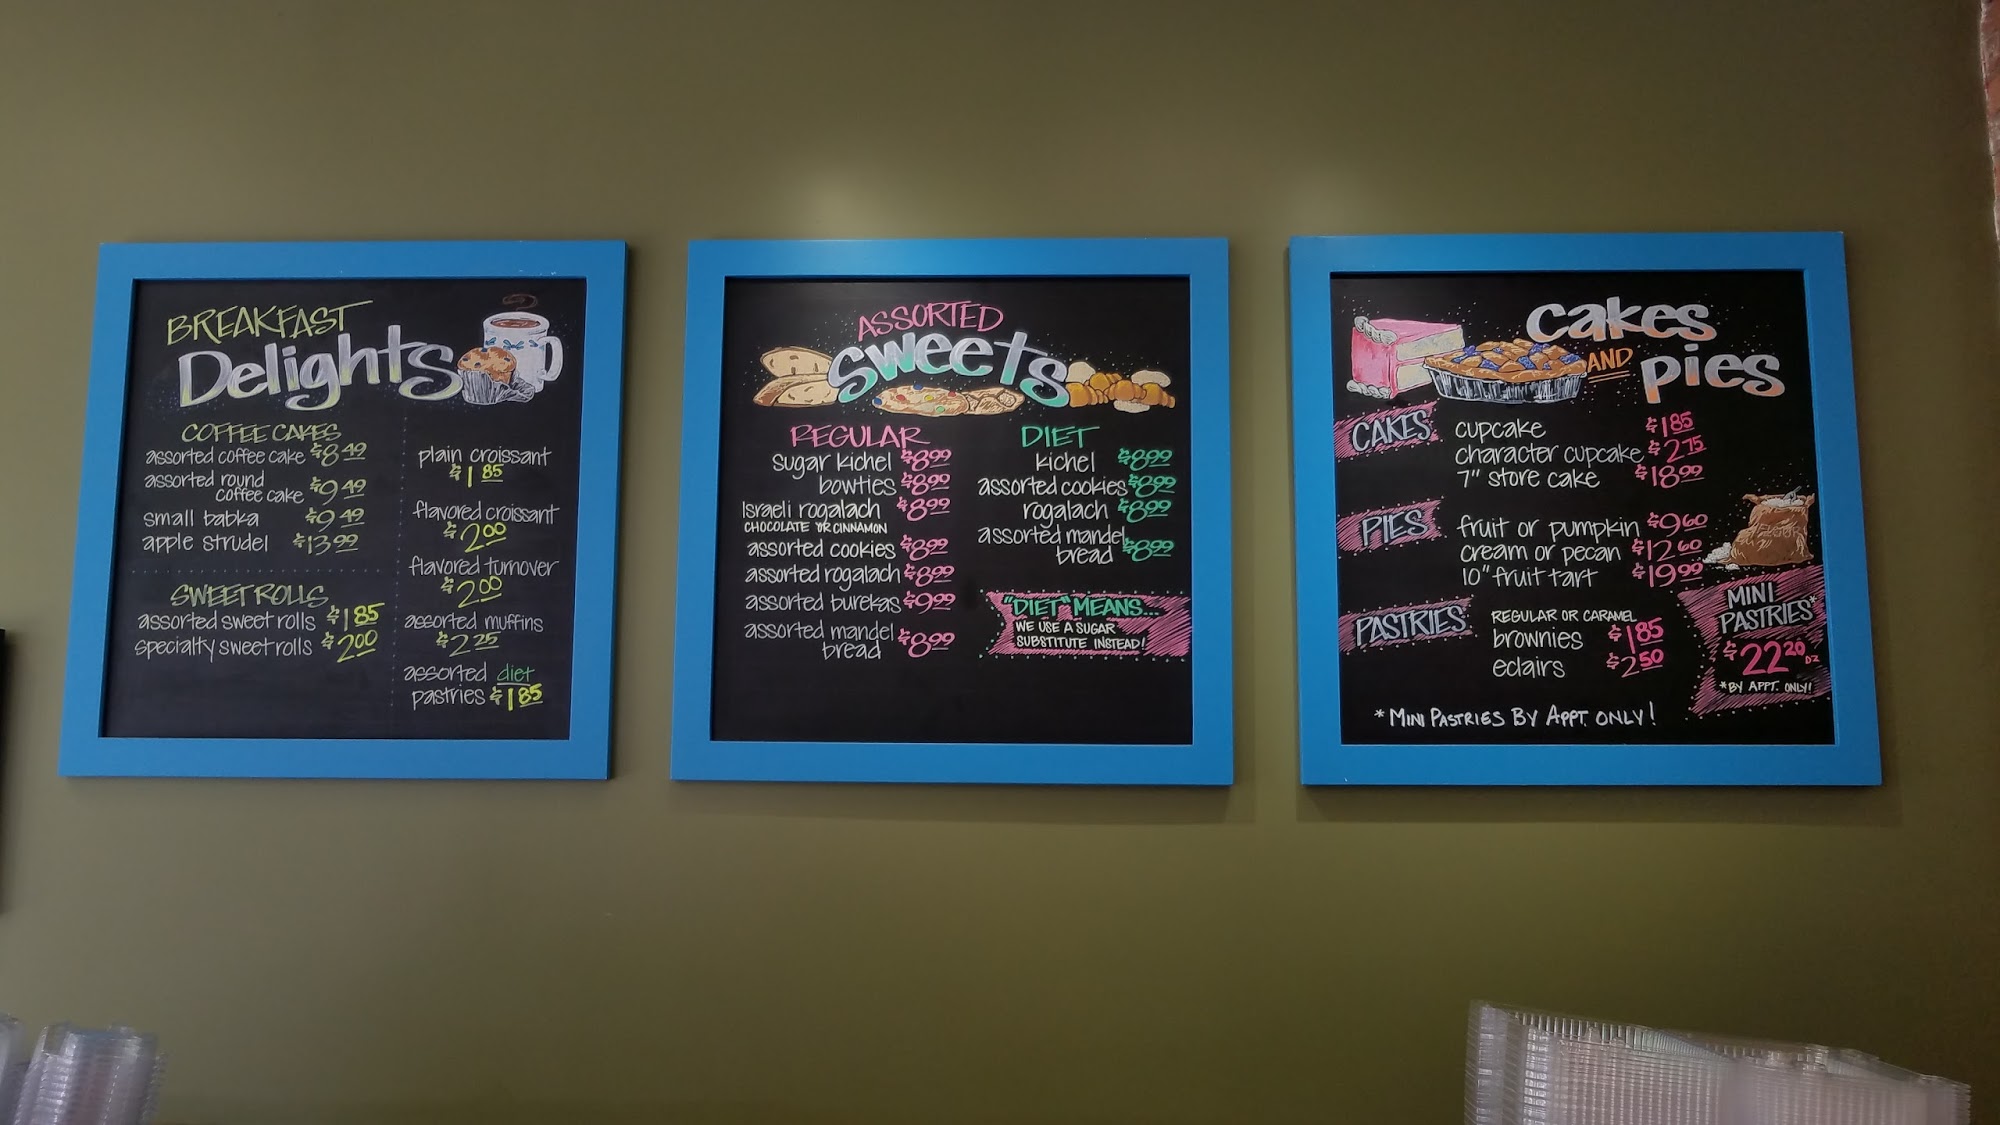 BREAKFAST
Delights
COFFEE CAKES
assorted coffee cake $8.49
assorted round
coffee cake $9.49
small babka $9.49
apple strudel $13.99
SWEET ROLLS
assorted sweet rolls $1.85
specialty sweet rolls $2.00
plain croissant
$1.85
flavored croissant
$2.00
flavored turnover
$2.00
assorted muffins
$2.25
assorted diet
pastries $1.85
ASSORTED
Sweets
REGULAR
sugar kichel $8.99
bowties $8.99
Israeli rogalach $8.99
CHOCOLATE OR CINNAMON
assorted cookies $8.99
assorted rogalach $8.99
assorted burekas $9.99
assorted mandel
bread $8.99
DIET
kichel $8.99
assorted cookies $8.99
rogalach $8.99
assorted mandel
bread $8.99
"DIET" MEANS...
WE USE A SUGAR
SUBSTITUTE INSTEAD!
cakes
AND pies
CAKES
cupcake $1.85
character cupcake $2.75
7" store cake $18.99
PIES
fruit or pumpkin $9.60
cream or pecan $12.60
10" fruit tart $19.99
PASTRIES
REGULAR OR CARAMEL
brownies $1.85
eclairs $2.50
MINI
PASTRIES*
$22.20 DZ
*BY APPT. ONLY!
* MINI PASTRIES BY APPT. ONLY!